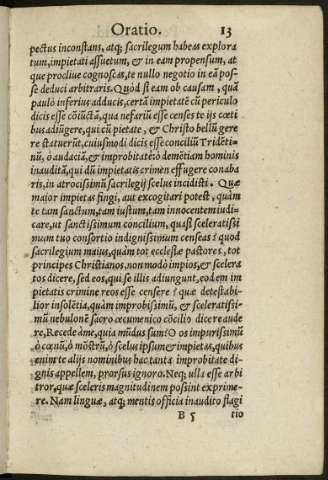 Oratio. 13
pectus inconstans, atq; sacrilegum habeas explora
tum, impietati assuetum, & in eam propensum, at
que procliue cognoscas, te nullo negotio in eā pos-
se deduci arbitraris. Quòd si eam ob causam, quā
paulò inferius adducis, certā impietatē cū periculo
dicis esse cōiūctā, qua nefariū esse censes te ijs cœti
bus adiūgere, qui cū pietate, & Christo bellū gere
re statuerūt, cuiusmodi dicis esse conciliū Tridēti-
nū, ô audaciā, & improbitatē ô demētiam hominis
inauditā, qui dū impietatis crimen effugere conaba
ris, in atrocissimū sacrilegij scelus incidisti. Quæ
maior impietas fingi, aut excogitari potest, quàm
te tam sanctum, tam iustum, tam innocentem iudi-
care, ut sanctissimum concilium, quasi sceleratissi
mum tuo consortio indignissimum censeas? quod
sacrilegium maius, quàm tot ecclesiæ pastores, tot
principes Christianos, non modò impios, & scelera
tos dicere, sed eos, qui se illis adiungunt, eodem im
pietatis crimine reos esse censere? quæ detestabi-
lior insolētia, quàm improbissimū, & sceleratissi-
mū nebulonē sacro œcumenico cōcilio dicere aude
re, Recede à me, quia mūdus sum? O os impurissimū
ô cœnū, ô mōstrū, ô scelus ipsum & impietas, quibus
enim te alijs nominibus hac tanta improbitate di-
gnis appellem, prorsus ignoro. Neq; ulla esse arbi
tror, quæ sceleris magnitudinem possint exprime-
re. Nam linguæ, atq; mentis officia inaudito flagi
B 5 tio